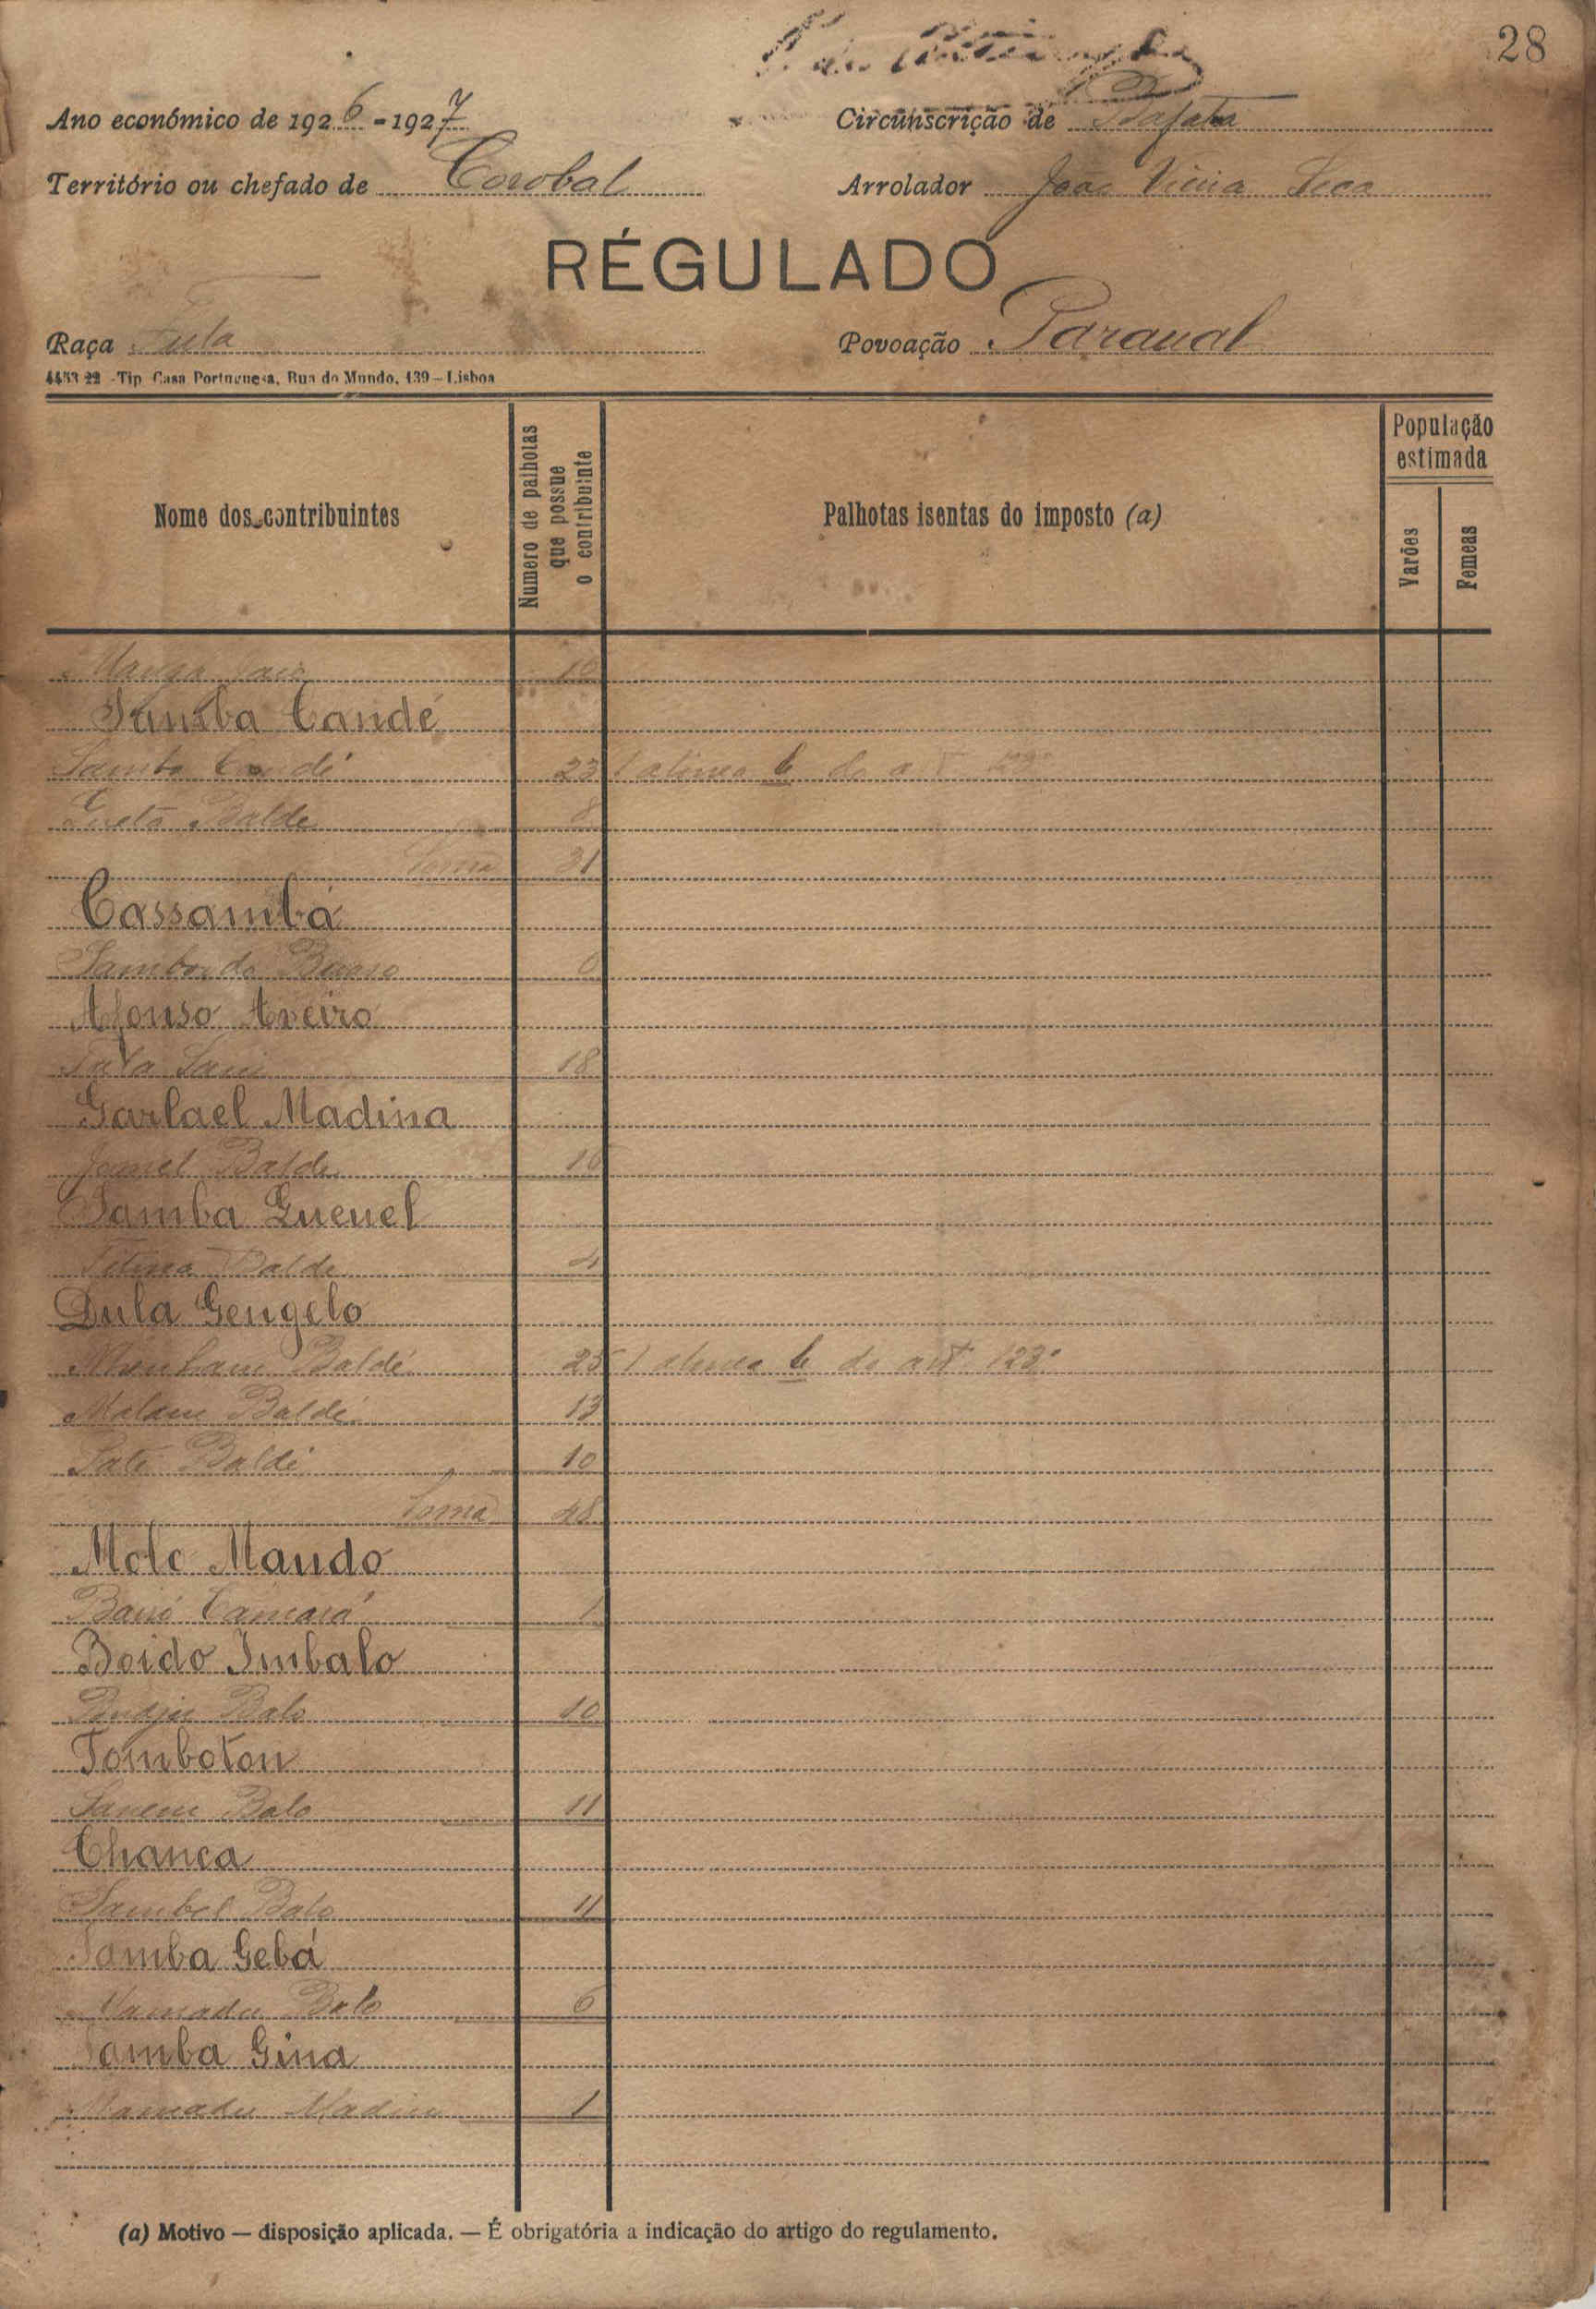 28
Ano económico de 1926-1927
Circunscrição de Bafatá
Território ou chefado de Corobal
Arrolador João Vieira
RÉGULADO
Raça Fula
Povoação Paraual
4453 22 - Tip Casa Portuguesa, Rua do Mundo, 139 - Lisboa
Nome dos contribuintes
Numero de palhotas que possue o contribuinte
Palhotas isentas do imposto (a)
População estimada
Varões
Femeas
Samba Candé
Samba Candé 23 1 alinea b do
Baldé 8
Soma 31
Cassambá
Afonso Aveiro
18
Garlael Madina
Baldé
Samba Queuel
Baldé 4
Dula Gengelo
Baldé 25 1 alinea b do art. 123º
Malam Baldé 13
Baldé 10
Soma 48
Molo Mando
Camará 1
Boido Imbalo
Balo 10
Tomboton
Balo 11
Chanca
Sambel Balo
Samba Gebá
Mamadu Balo 6
Samba Gina
Mamadu 1
(a) Motivo — disposição aplicada. — É obrigatória a indicação do artigo do regulamento.